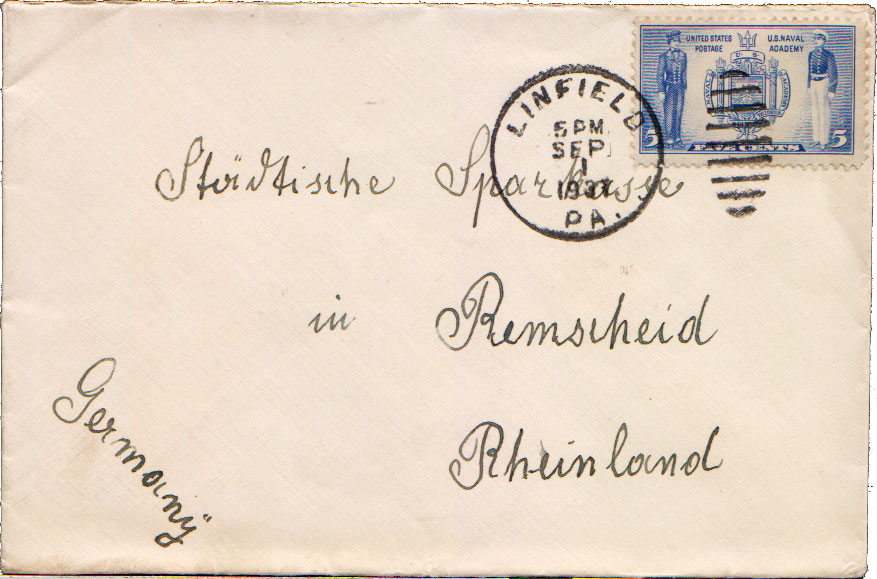 UNITED STATES POSTAGE
U.S. NAVAL ACADEMY
5 FIVE CENTS 5
LINFIELD
5 PM
SEP
1
1937
PA.
Städtische Sparkasse
in Remscheid
Rheinland
Germanÿ